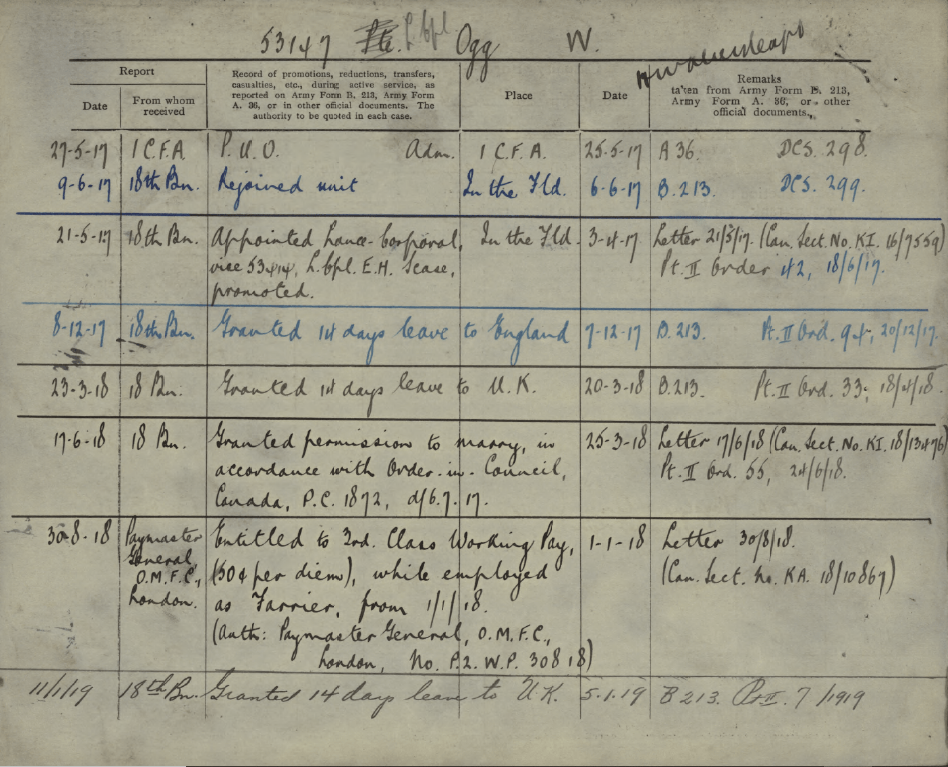 53147 Pte. L. Cpl Ogg W.
Report
Record of promotions, reductions, transfers,
casualties, etc., during active service, as
reported on Army Form B, 213, Army Form
A. 36, or in other official documents. The
authority to be quoted in each case.
Place
Date
Remarks
taken from Army Form B. 213,
Army Form A. 36, or other
official documents.
Date
From whom
received
27-5-17 1 C.F.A. P.U.O. Adm. 1 C.F.A. 25-5-17 A 36. DCS. 298.
9-6-17 18th Bn. Rejoined unit In the Fld. 6-6-17 B.213. DCS. 299.
21-5-17 18th Bn. Appointed Lance-Corporal, In the Fld. 3-4-17. Letter 21/5/17. (Can. Sect. No. KI. 16/7559)
vice 53414, L. Cpl. E.H. Scase, Pt. II Order 42, 18/6/17.
promoted.
8-12-17 18th Bn. Granted 14 days leave to England 7-12-17 B.213. Pt. II Ord. 94, 20/12/17.
23-3-18 18 Bn. Granted 14 days leave to U.K. 20-3-18 B.213 Pt. II Ord. 33, 18/4/18.
17-6-18 18 Bn. Granted permission to marry, in 25-3-18 Letter 17/6/18 (Can. Sect. No. KI. 18/13476)
accordance with Order-in-Council, Pt. II Ord. 55, 24/6/18.
Canada, P.C. 1872, d/6.7.17.
30-8-18 Paymaster Entitled to 3rd. Class Working Pay, 1-1-18 Letter 30/8/18.
General, (50¢ per diem), while employed (Can. Sect. No. KA. 18/10867)
O.M.F.C., as Farrier, from 1/1/18.
London. (Auth: Paymaster General, O.M.F.C.,
London, No. P.2. W.P. 308 18)
11/1/19 18th Bn. Granted 14 days leave to U.K. 5.1.19 B 213. Pt II. 7/1919